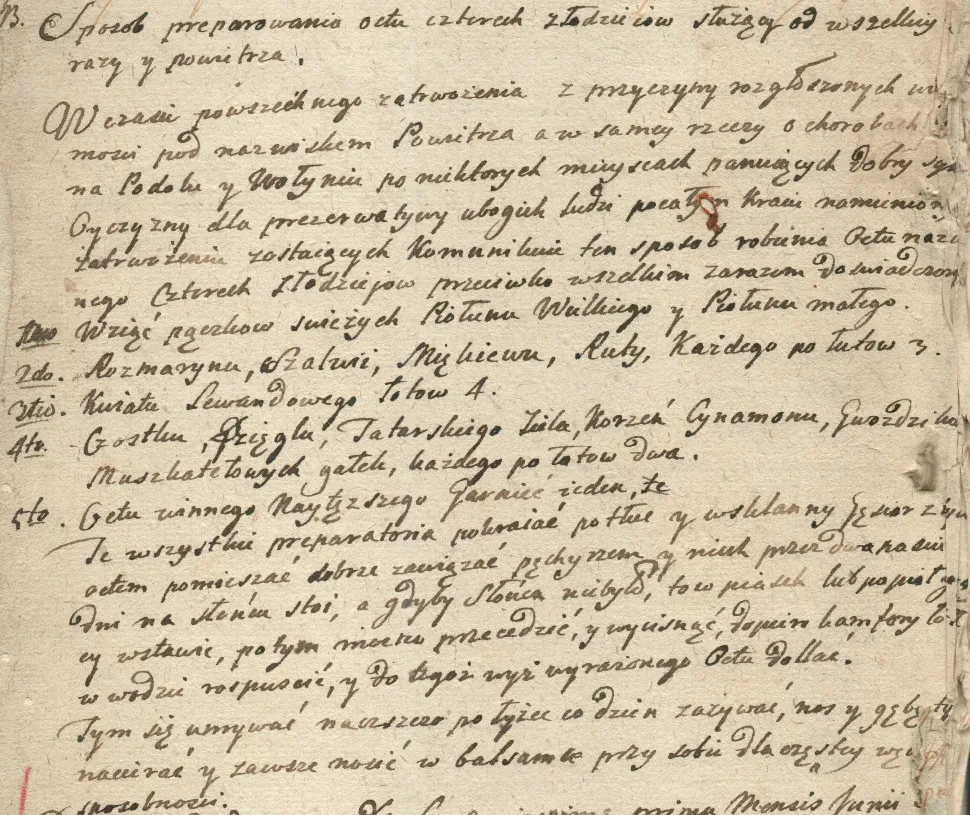 B. Sposob preparowania octu czterech złodzieiow służący od wszelkiey
razy y powietrza.
W czasie powszechnego zatrwożenia z przyczyny rozgłoszonych
mości pod nazwiskiem Powietrza a w samey rzeczy o chorobach
na Podolu y Wołyniu po niektorych mieyscach panuiących dobry
Oyczyzny dla prezerwatywy ubogich ludzi po całym Kraiu
zatrwożeniu zostaiących Kommunikuie ten sposob robienia Octu
nego Czterech Złodziejow przeciwko wszelkim zarazom doświadczony
1mo Wziąć pączkow swieżych Piołunu Wielkiego y Piołunu małego.
2do. Rozmarynu, Szałwii, Miętkiewu, Ruty, Każdego po łutow 3.
3tio. Kwiatu Lewandowego łotow 4.
4to. Czostku, Dzięglu, Tatarskiego Ziela, Korzeń Cynamonu, Gwoździkow
Muszkatełowych gałek, każdego po łatow dwa.
5to. Octu winnego Naytęższego Garniec ieden, te
Te wszystkie preparatoria pokraiać potłuc y w sklanny Gęsior z tym
octem pomieszać dobrze zawiązać pęchyrzem y niech przez dwanaście
dni na słońcu stoi, a gdyby Słońca niebyło, to w piasek lub popioł
cy wstawić, potym mocno przecedzić, y wycisnąć, dopiero kamfory
w wodzie rospuscić, y do tegoż wyż wyrażonego Octu dollać.
Tym się umywać naczszczo po łyżce co dzien zażywać, nos y gębę
nacierać y zawsze nosić w balsamce przy sobie dla częstey
sposobnosci.
prima Mensis Junii